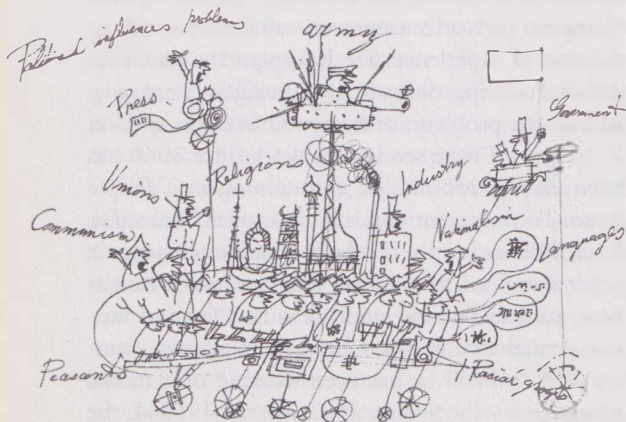 Political influences problems
army
Press
Government
Unions
Religion
Industry
Communism
Nationalism
Languages
Peasants
Racial